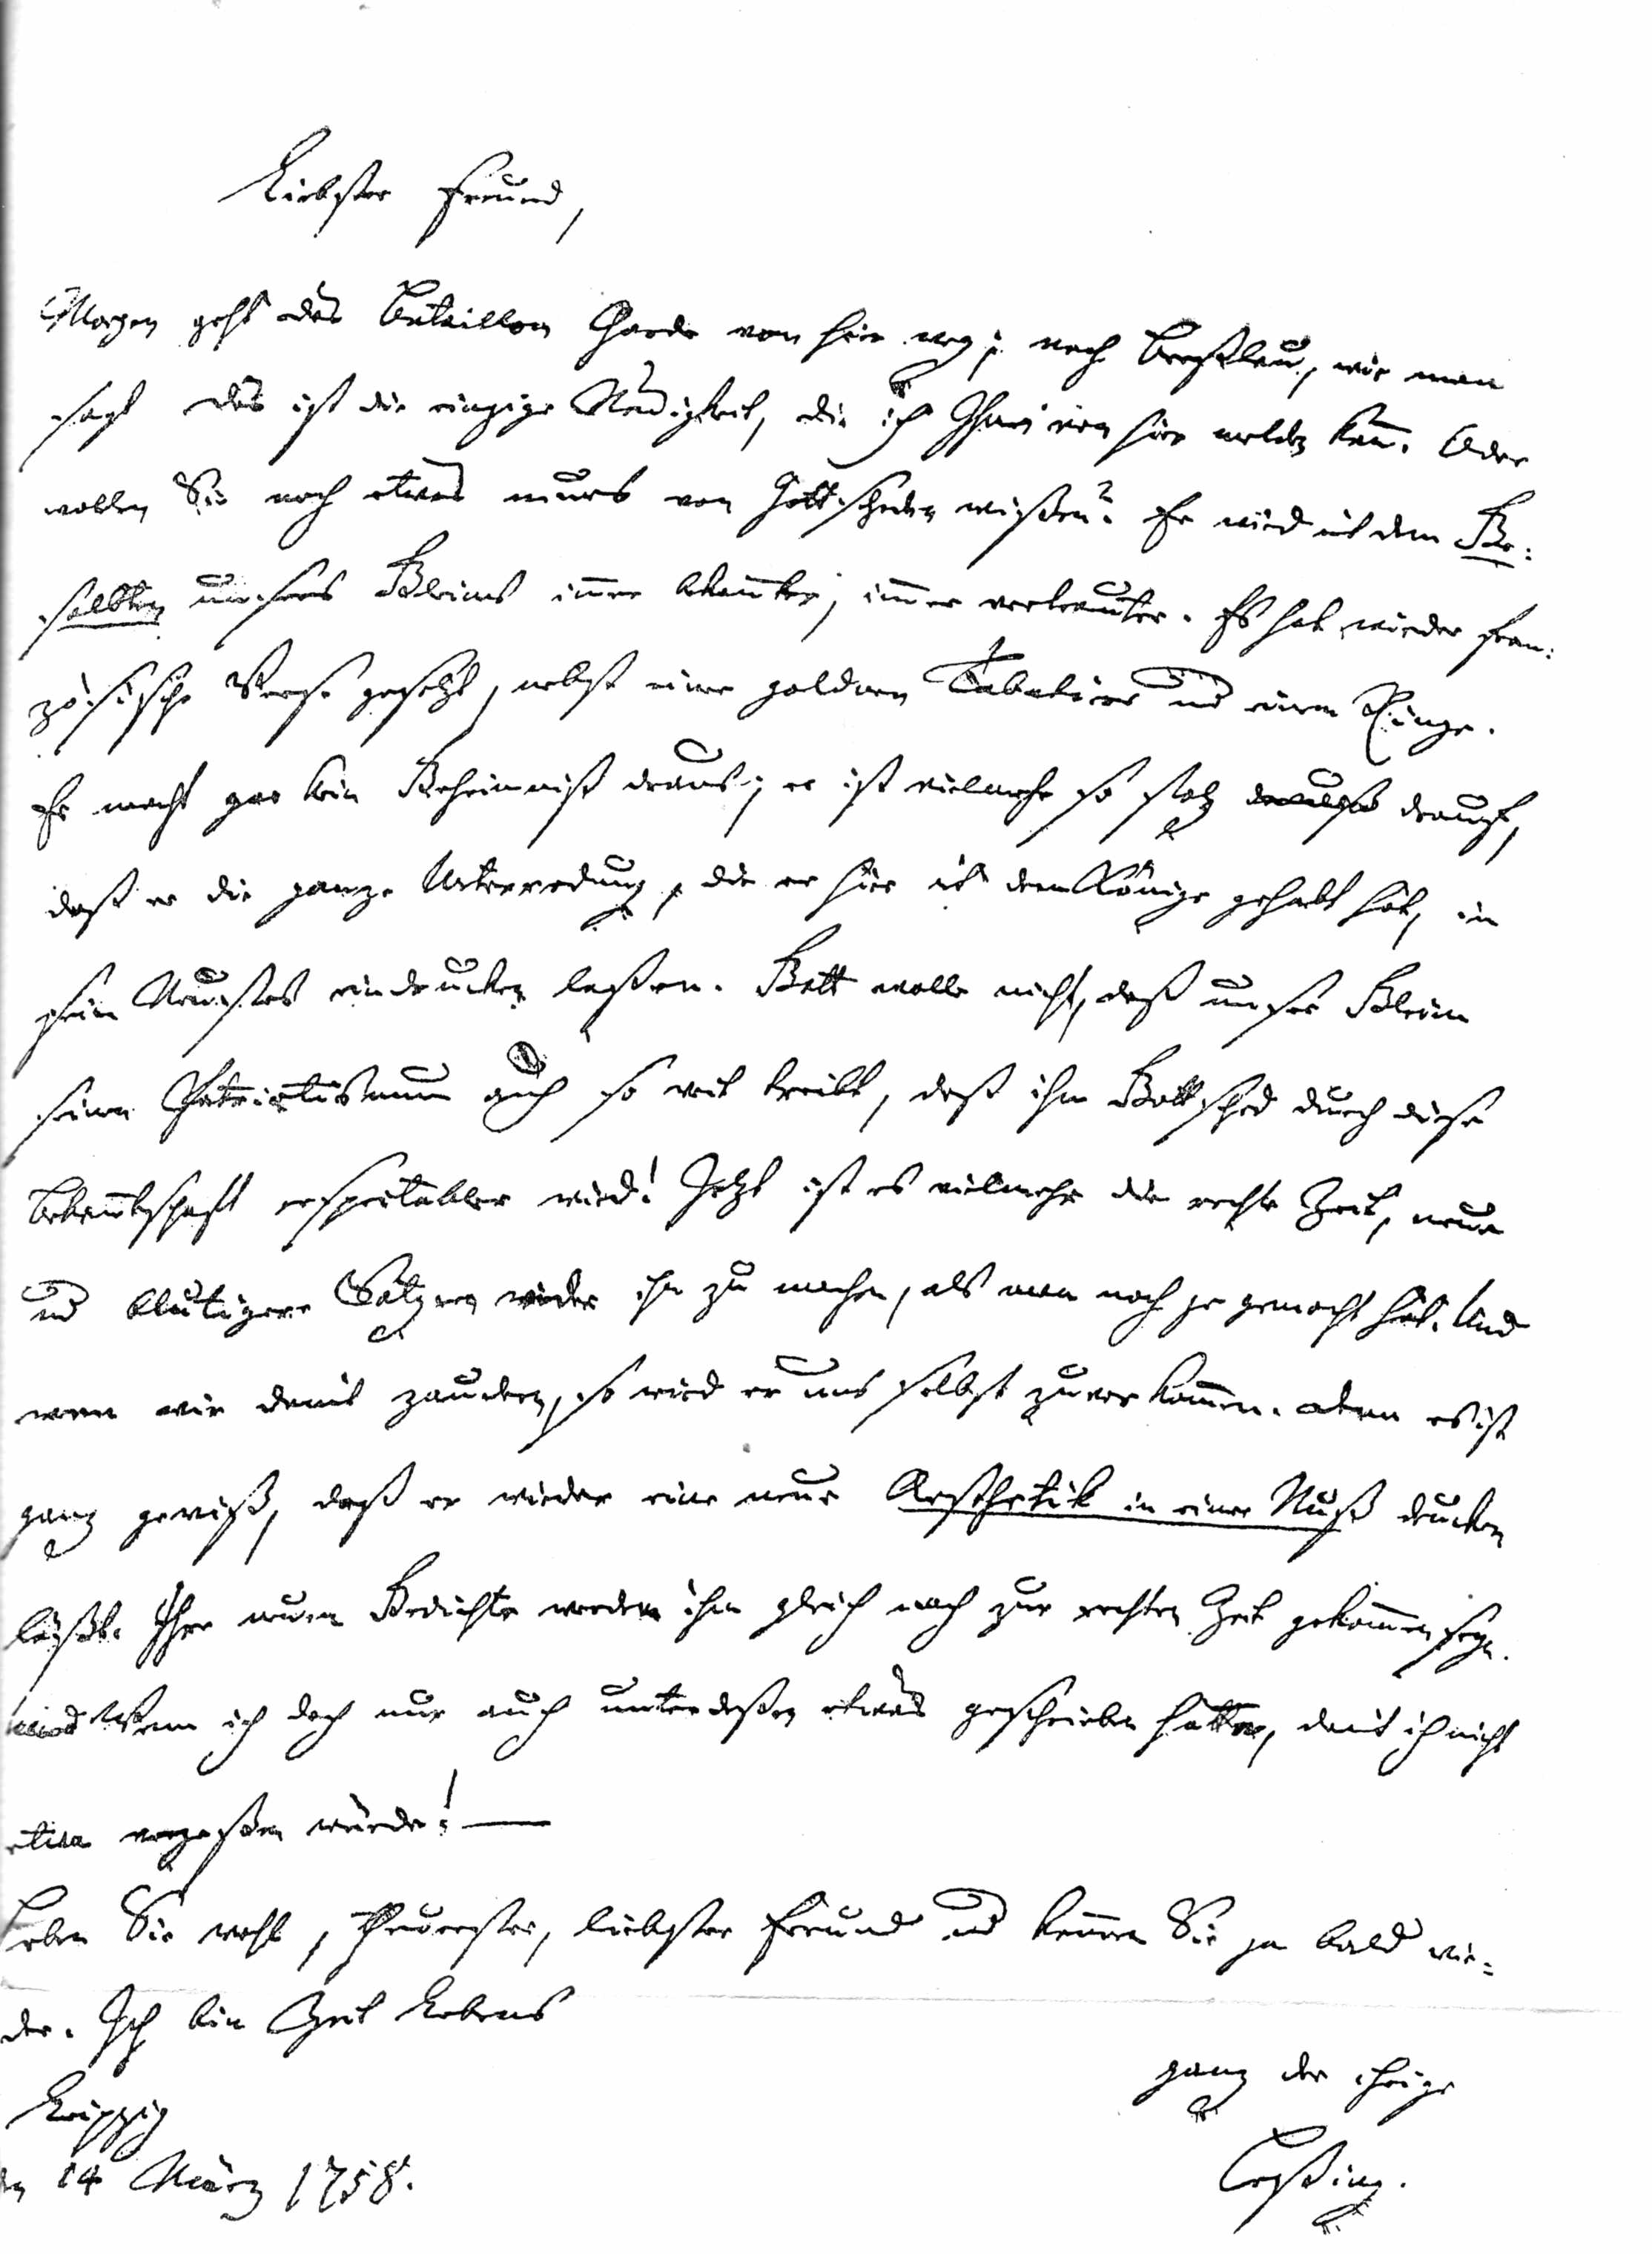 Liebster Freund,
Morgen geht das Bataillon Garde von hier weg; nach Breßlau, wie man
sagt das ist die einzige Neuigkeit, die ich Ihnen von hier melden kañ. Oder
wollen Sie noch etwas neues von Gottscheden wißen? Er wird mit dem Ge-
salbten unsers Gleims im̃er bekañter, im̃er vertrauter. Es hat wieder fran-
zösische Verse gesetzt, nebst einer goldnen Tabatiere und einem Ringe.
Er macht gar kein Geheimniß draus; er ist vielmehr so stolz drauf,
daß er die ganze Unterredung, die er hier mit dem Könige gehabt hat, in
sein Neuestes eindrucken laßen. Gott wolle nicht, daß unser Gleim
seinen Patriotismum auch so weit treibt, daß ihm Gottsched durch diese
Bekañtschaft respectabler wird! Jetzt ist es vielmehr die rechte Zeit, neue
und blutigere Satyren wider ihn zu machen, als man noch je gemacht hat. Und
wenn wir damit zaudern, so wird er uns selbst zuvor kom̃en. denn es ist
ganz gewiß, daß er wieder eine neue Aesthetik in einer Nuß drucken
läßt. Ihre neuen Gedichte werden ihm gleich noch zur rechten Zeit gekom̃en seyn.
Wenn ich doch nur auch unterdeßen etwas geschrieben hätte, damit ich nicht
etwa vergeßen würde! —
Leben Sie wohl, theuerster, liebster Freund und kom̃en Sie ja bald wie-
der. Ich bin Zeit Lebens
ganz der ihrige
Leipzig
den 14 März 1758.
Leßing.